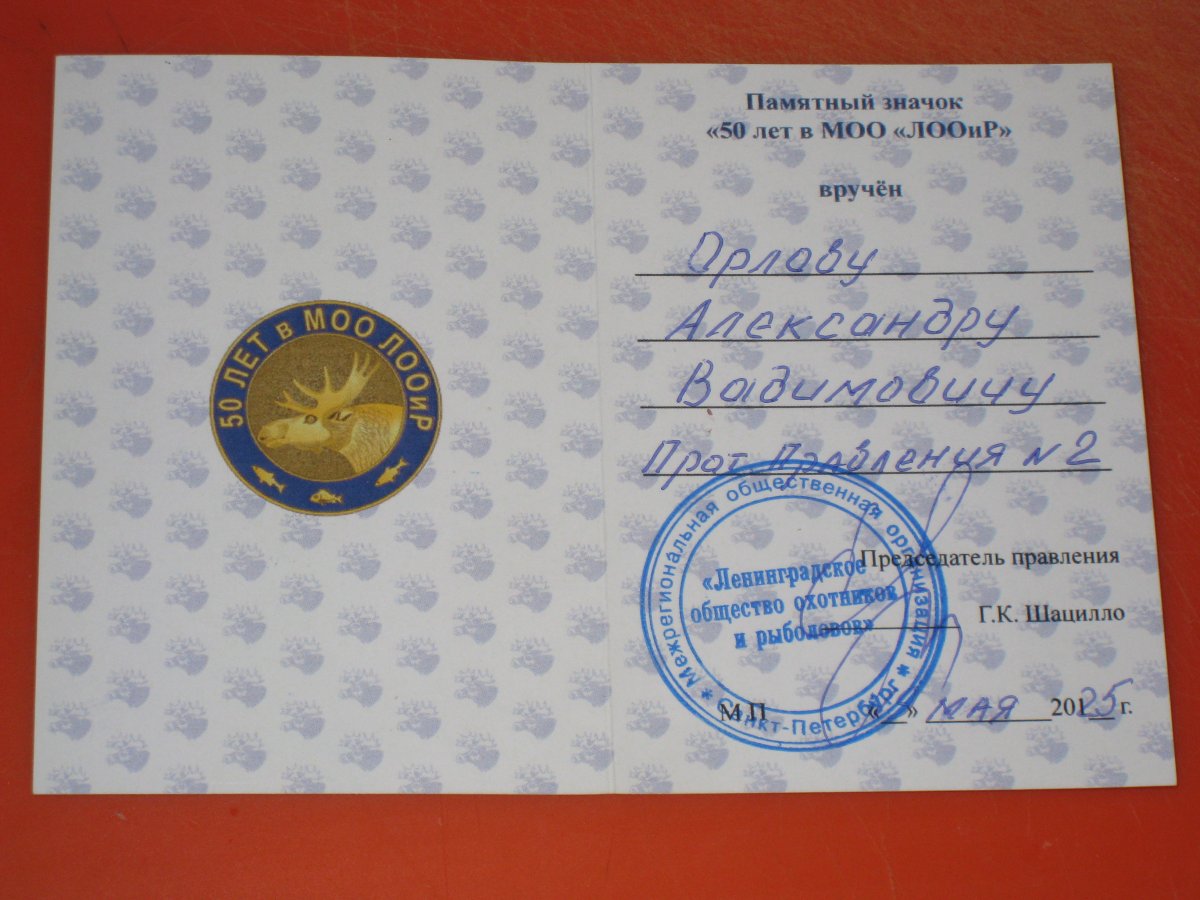 50 ЛЕТ в МОО ЛООиР
Памятный значок
«50 лет в МОО «ЛООиР»
вручён
Орлову
Александру
Вадимовичу
Прот Правления N2
Межрегиональная общественная организация * Санкт-Петербург *
«Ленинградское
общество охотников
и рыболовов»
Председатель правления
Г.К. Шацилло
М.П «__» мая 2025 г.